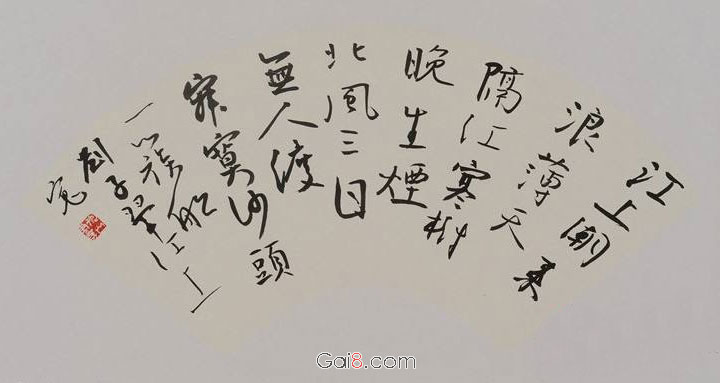 江上潮來
浪薄天
隔江寒樹
晚生煙
北風三日
無人渡
寂寞沙頭
一簇船
劉子翬江上
Gai8.com